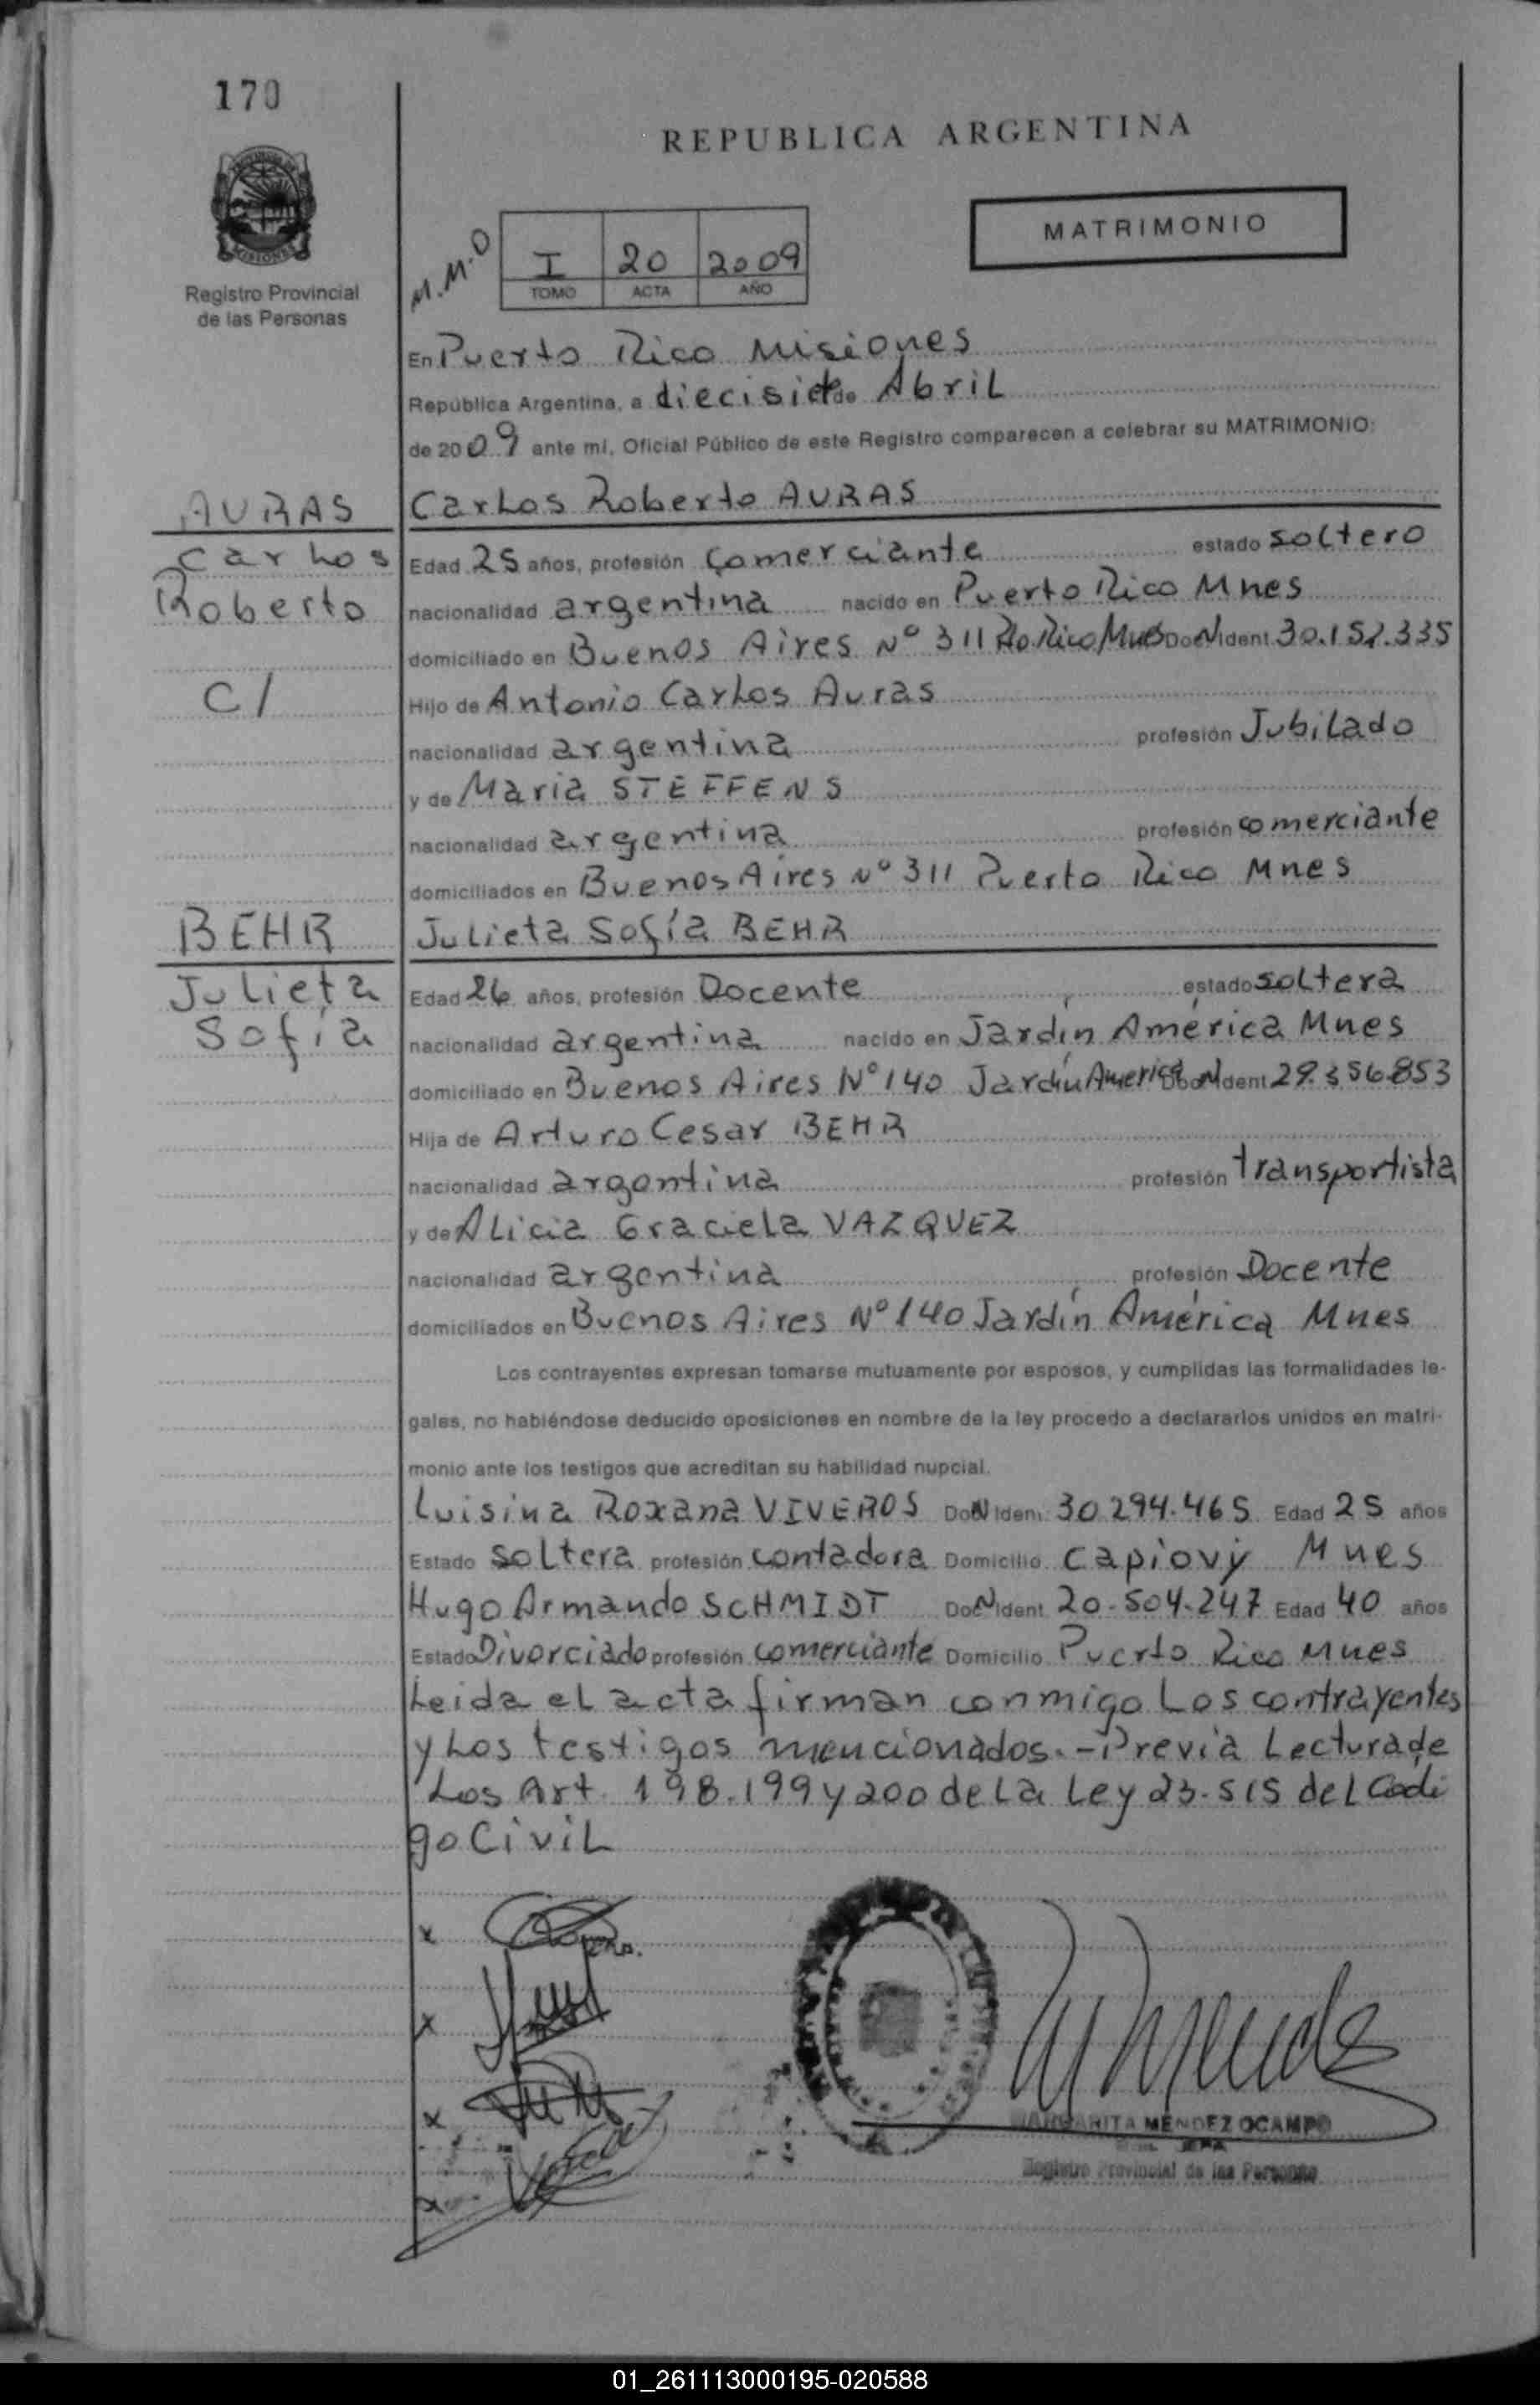 170
REPUBLICA ARGENTINA
MATRIMONIO
Registro Provincial
de las Personas
M.M.O
I 20 2009
TOMO ACTA AÑO
En Puerto Rico Misiones
República Argentina, a diecisiete de Abril
de 2009 ante mí, Oficial Público de este Registro comparecen a celebrar su MATRIMONIO:
AURAS
Carlos Roberto AURAS
Carlos
Edad 25 años, profesión comerciante estado soltero
Roberto
nacionalidad argentina nacido en Puerto Rico Mnes
domiciliado en Buenos Aires Nº 311 Pto. Rico Mnes Doc N Ident. 30.152.335
C/
Hijo de Antonio Carlos Auras
nacionalidad argentina profesión Jubilado
y de Maria STEFFENS
nacionalidad argentina profesión comerciante
domiciliados en Buenos Aires Nº 311 Puerto Rico Mnes
BEHR
Julieta Sofía BEHR
Julieta
Edad 26 años, profesión Docente estado soltera
Sofía
nacionalidad argentina nacido en Jardín América Mnes
domiciliado en Buenos Aires Nº 140 Jardín America Doc N Ident 29.356.853
Hija de Arturo Cesar BEHR
nacionalidad argentina profesión transportista
y de Alicia Graciela VAZQUEZ
nacionalidad argentina profesión Docente
domiciliados en Buenos Aires Nº 140 Jardín América Mnes
Los contrayentes expresan tomarse mutuamente por esposos, y cumplidas las formalidades le-
gales, no habiéndose deducido oposiciones en nombre de la ley procedo a declararlos unidos en matri-
monio ante los testigos que acreditan su habilidad nupcial.
Luisina Roxana VIVEROS Doc N Ident. 30.294.465 Edad 25 años
Estado soltera profesión contadora Domicilio capiovy Mnes
Hugo Armando SCHMIDT Doc N Ident 20.504.247 Edad 40 años
Estado Divorciado profesión comerciante Domicilio Puerto Rico Mnes
Leida el acta firman conmigo Los contrayentes
y Los testigos mencionados.-Previa Lectura de
Los Art. 198.199 y 200 de La Ley 23.515 del Codi
go Civil
x
x
x
x
MARGARITA MENDEZ OCAMPO
JEFA
Registro Provincial de las Personas
01_261113000195-020588